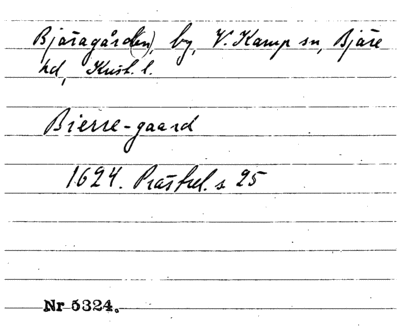 Bjäragården), by, V. Karup sn, Bjäre
hd, Krist. l.
Bierre-gaard
1624. Prästrel. s 25
Nr 5324.